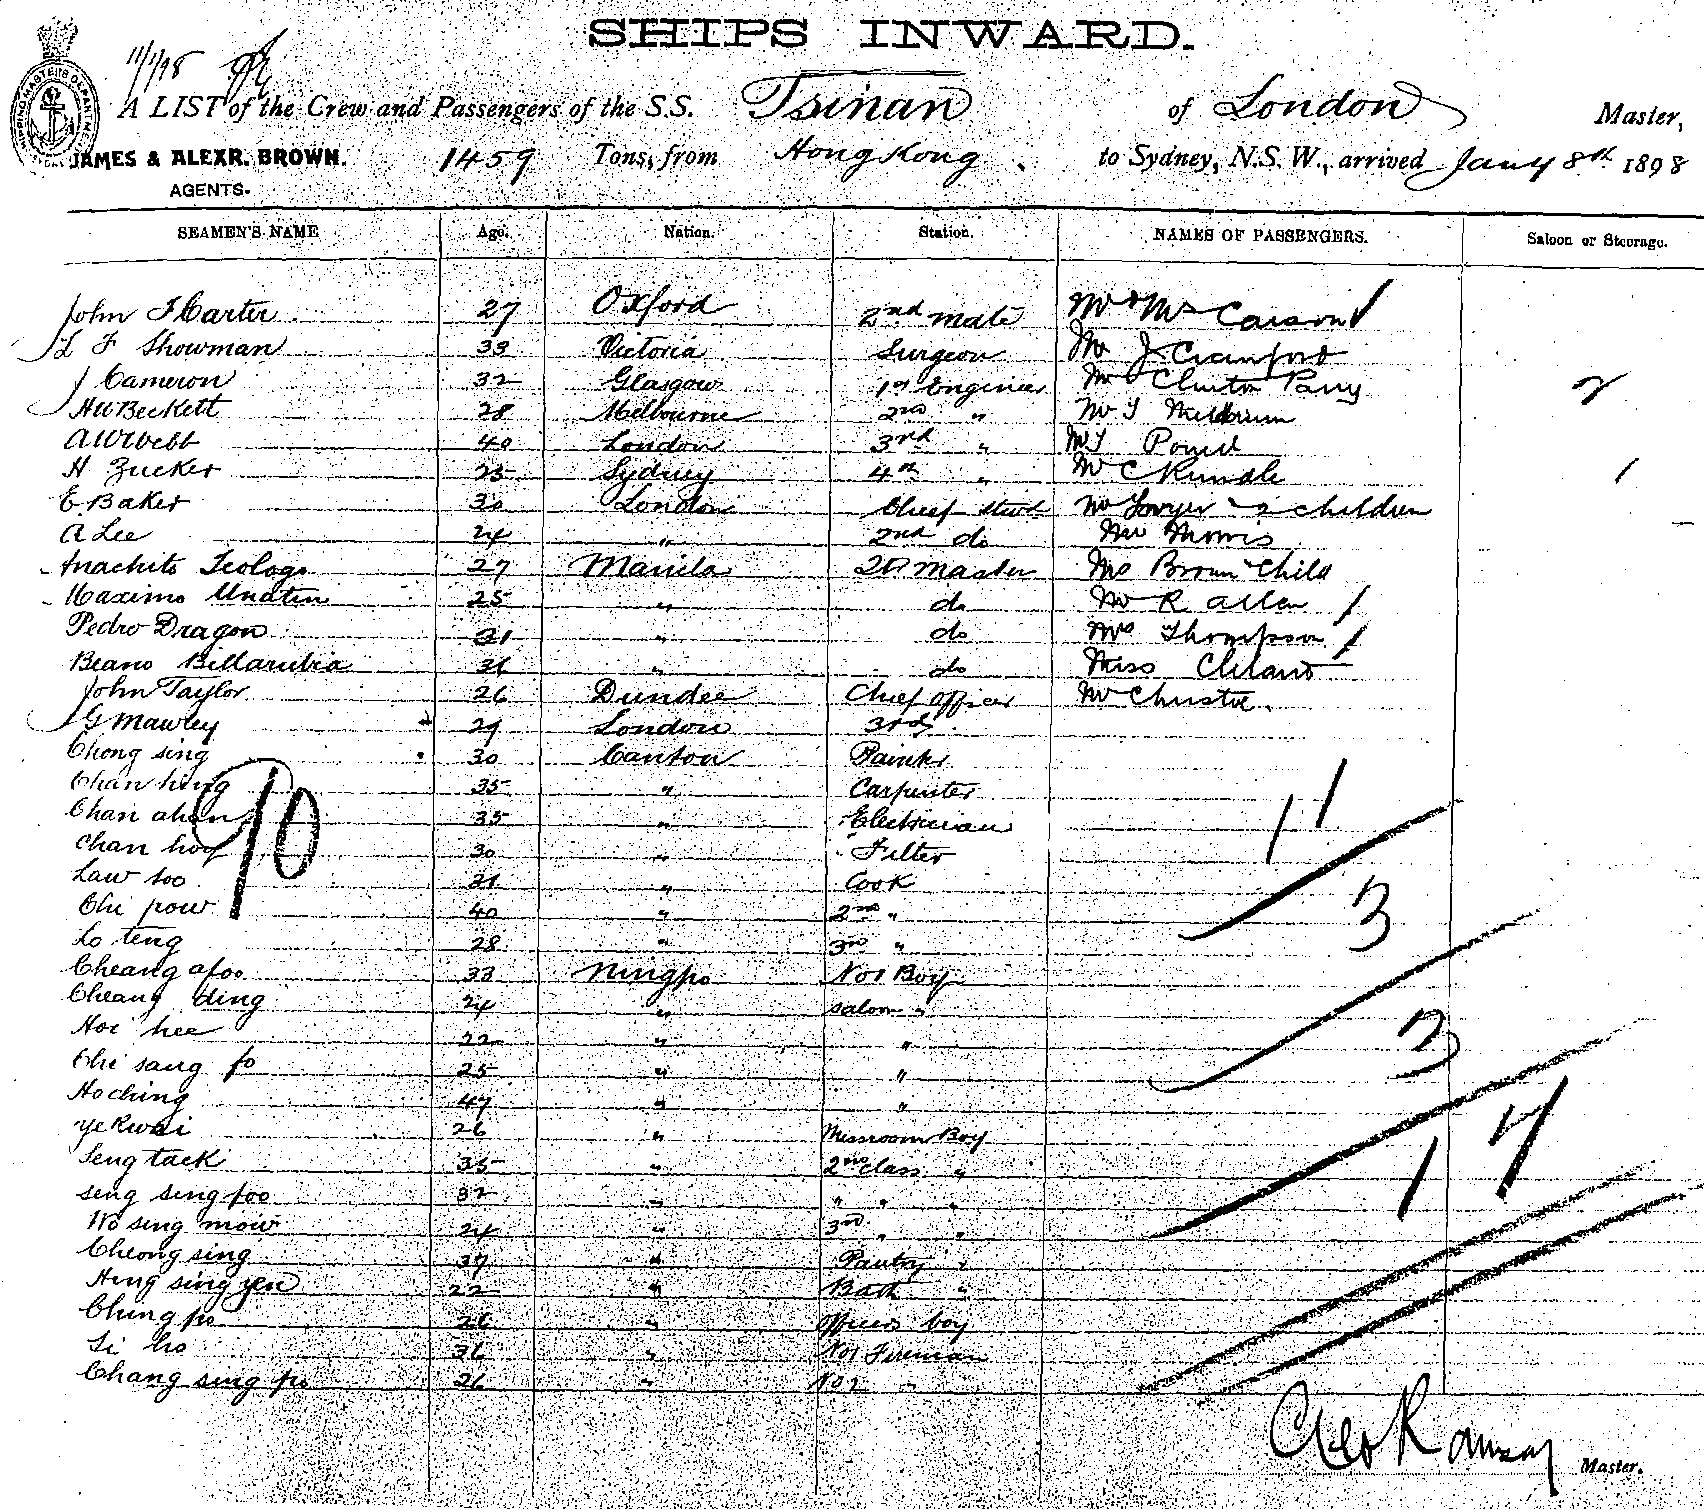 SHIPS INWARD.
11/1/98
A LIST of the Crew and Passengers of the S.S. Tsinan of London Master,
JAMES & ALEXR. BROWN. 1459 Tons, from Hong Kong to Sydney, N.S.W., arrived Jany 8th 1898
AGENTS.
SEAMEN'S NAME Age. Nation. Station. NAMES OF PASSENGERS. Saloon or Steerage.
John F Carter 27 Oxford 2nd mate Mr & Mrs Carson
L F Showman 33 Victoria Surgeon Mr J Cranford
J Cameron 32 Glasgow 1st Engineer Mr Clinton Parry 2
HW Beckett 28 Melbourne 2nd " Mr T
AW Webb 40 London 3rd " Mr T Pound
H Zucker 25 Sydney 4th " Mr C Rundle 1
E Baker 30 London Chief Stwd Mr Sawyer 2 children
A Lee 24 " 2nd do Morris
Anachito Teologo 27 Manila Qr Master Mrs Brown Child
Maximo Unatin 25 " do Mr R Allen
Pedro Dragon 31 " do Mrs Thompson
Beano Billarubia 31 " do Miss Cleland
John Taylor 26 Dundee Chief Officer Mr Christie
G Mawley 29 London 3rd
Chong sing 30 Canton Painter
Chan hing 35 " Carpenter
Chan ahan 35 " Electrician 11
10
Chan hoy 30 " Fitter
Law soo 31 " Cook
Chi pow 40 " 2nd " 3
Lo teng 28 " 3rd "
Cheang afoo 33 Ningpo No 1 Boy
Cheang ding 24 " saloon "
Hoi hee 22 " " 3
Chi sang fo 25 " "
Ho ching 47 " "
Ye Kwai 26 " Messroom Boy
Seng tack 35 " 2nd class " 17
Seng sing foo 32 " " " "
Wo sing mow 24 " 3rd " "
Cheong sing 37 " Pantry "
Hing sing yen 22 " Bath "
Ching po 26 " Officers boy
Li ho 36 " No 1 Fireman
Chang sing po 26 " No 2 "
Geo Ramsay Master.